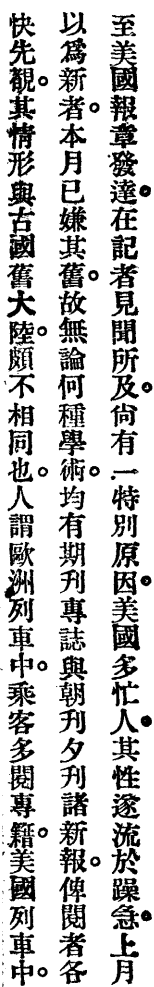 至美國報章發達。在記者見聞所及。尙有一特別原因。美國多忙人。其性遂流於躁急。上月
以爲新者。本月已嫌其舊。故無論何種學術。均有期刊專誌。與朝刊夕刊諸新報。俾閱者各
快先覩。其情形與古國舊大陸。頗不相同也。人謂歐洲列車中。乘客多閱專籍。美國列車中。